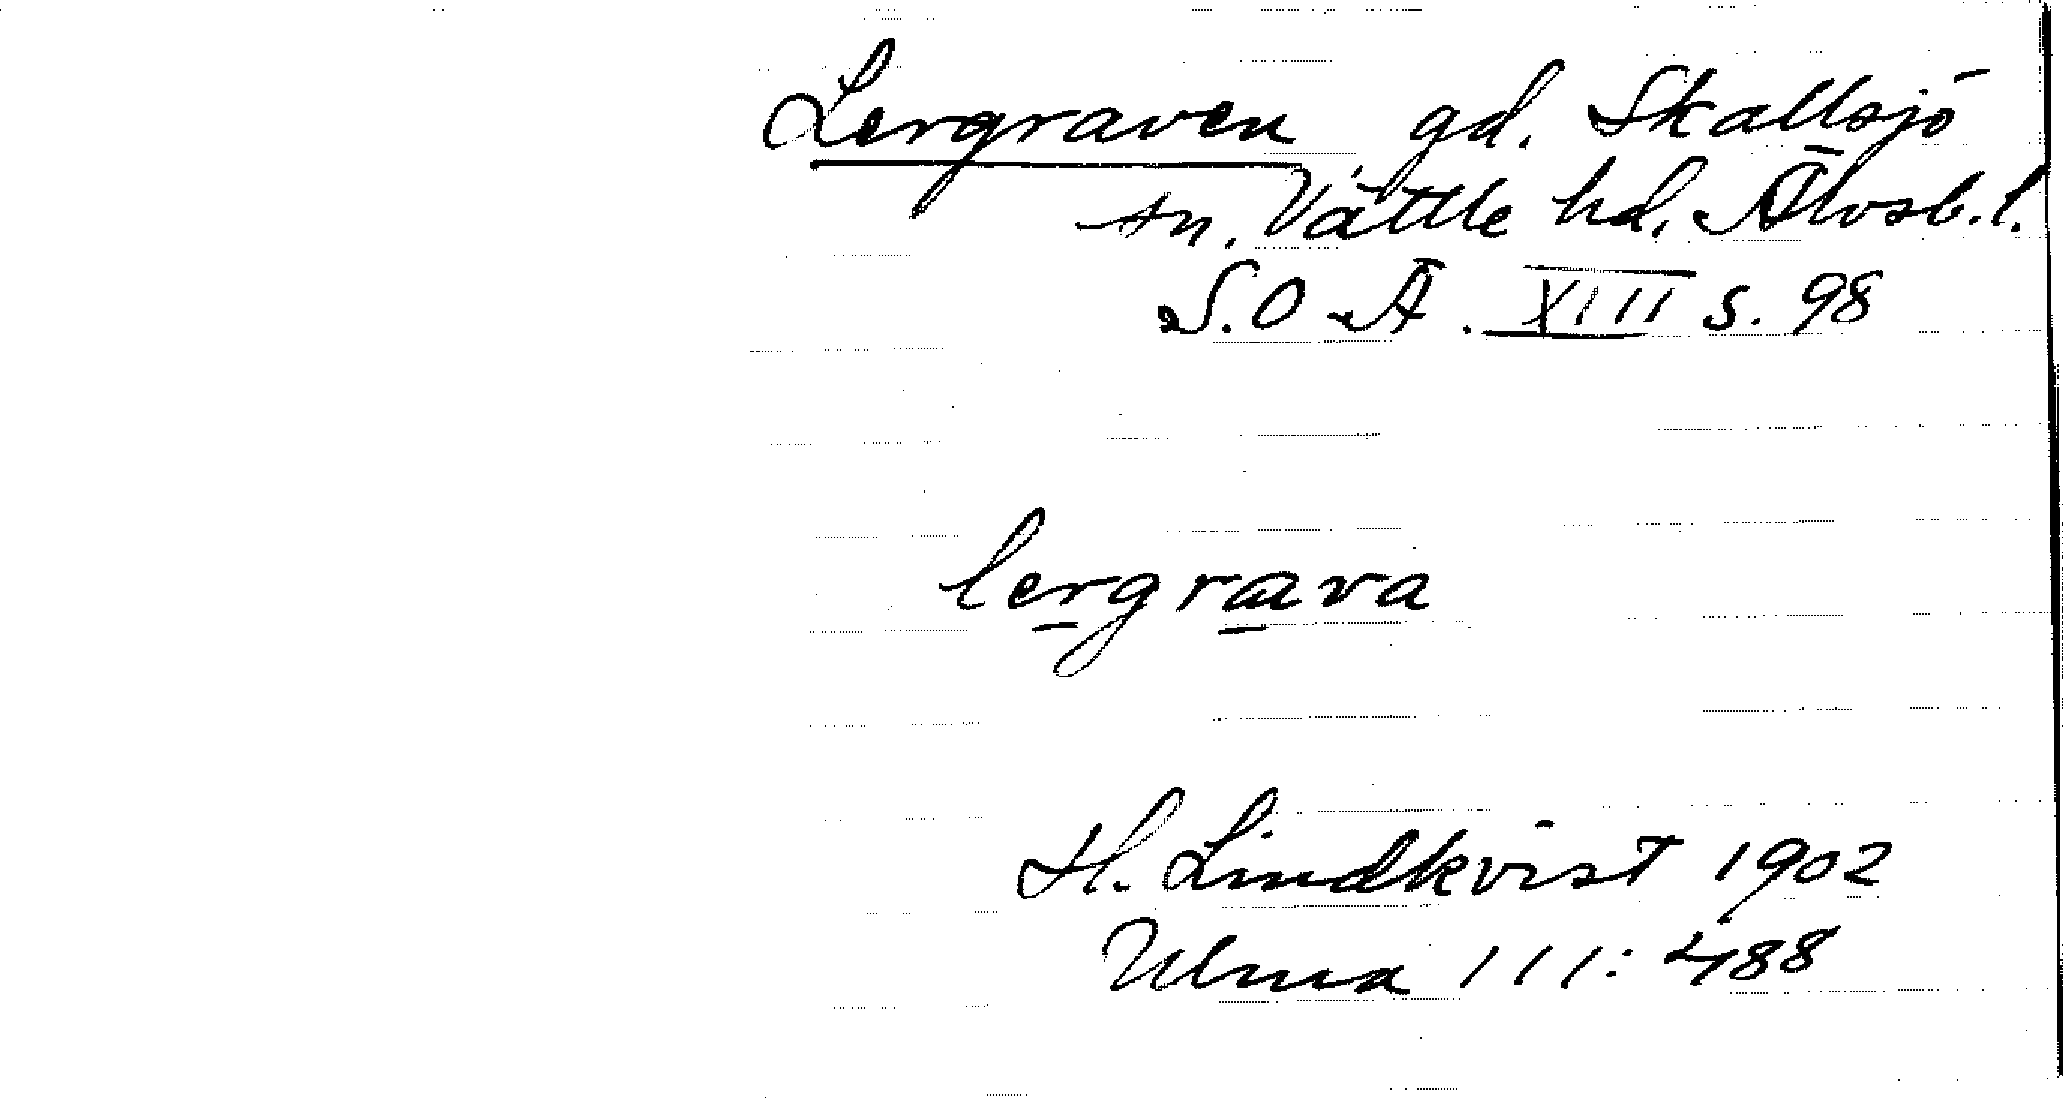 Lergraven, gd. Skallsjö
sn. Vättle hd. Älvsb. l.
S.O.Ä. XIII s. 98
lergrava
H. Lindkvist 1902
Ulma 111:488